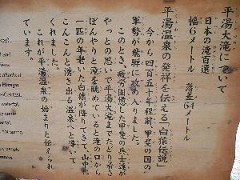 平湯大滝について
日本の滝百選
幅6メートル 落差64メートル
平湯温泉の発祥を伝える「白猿伝説」
今から四百五十年程前、甲斐の国の
軍勢が飛騨に攻め入りました。
このとき、疲労困憊した甲斐の兵士達が
やっとの思いで平湯大滝までたどり着き
ぼんやりと滝を眺めていると滝の中から
一匹の年老いた白猿が降りてきて、山中
こんこんと湧き出る温泉
これが平湯温泉の始まりと伝えられ
ています。